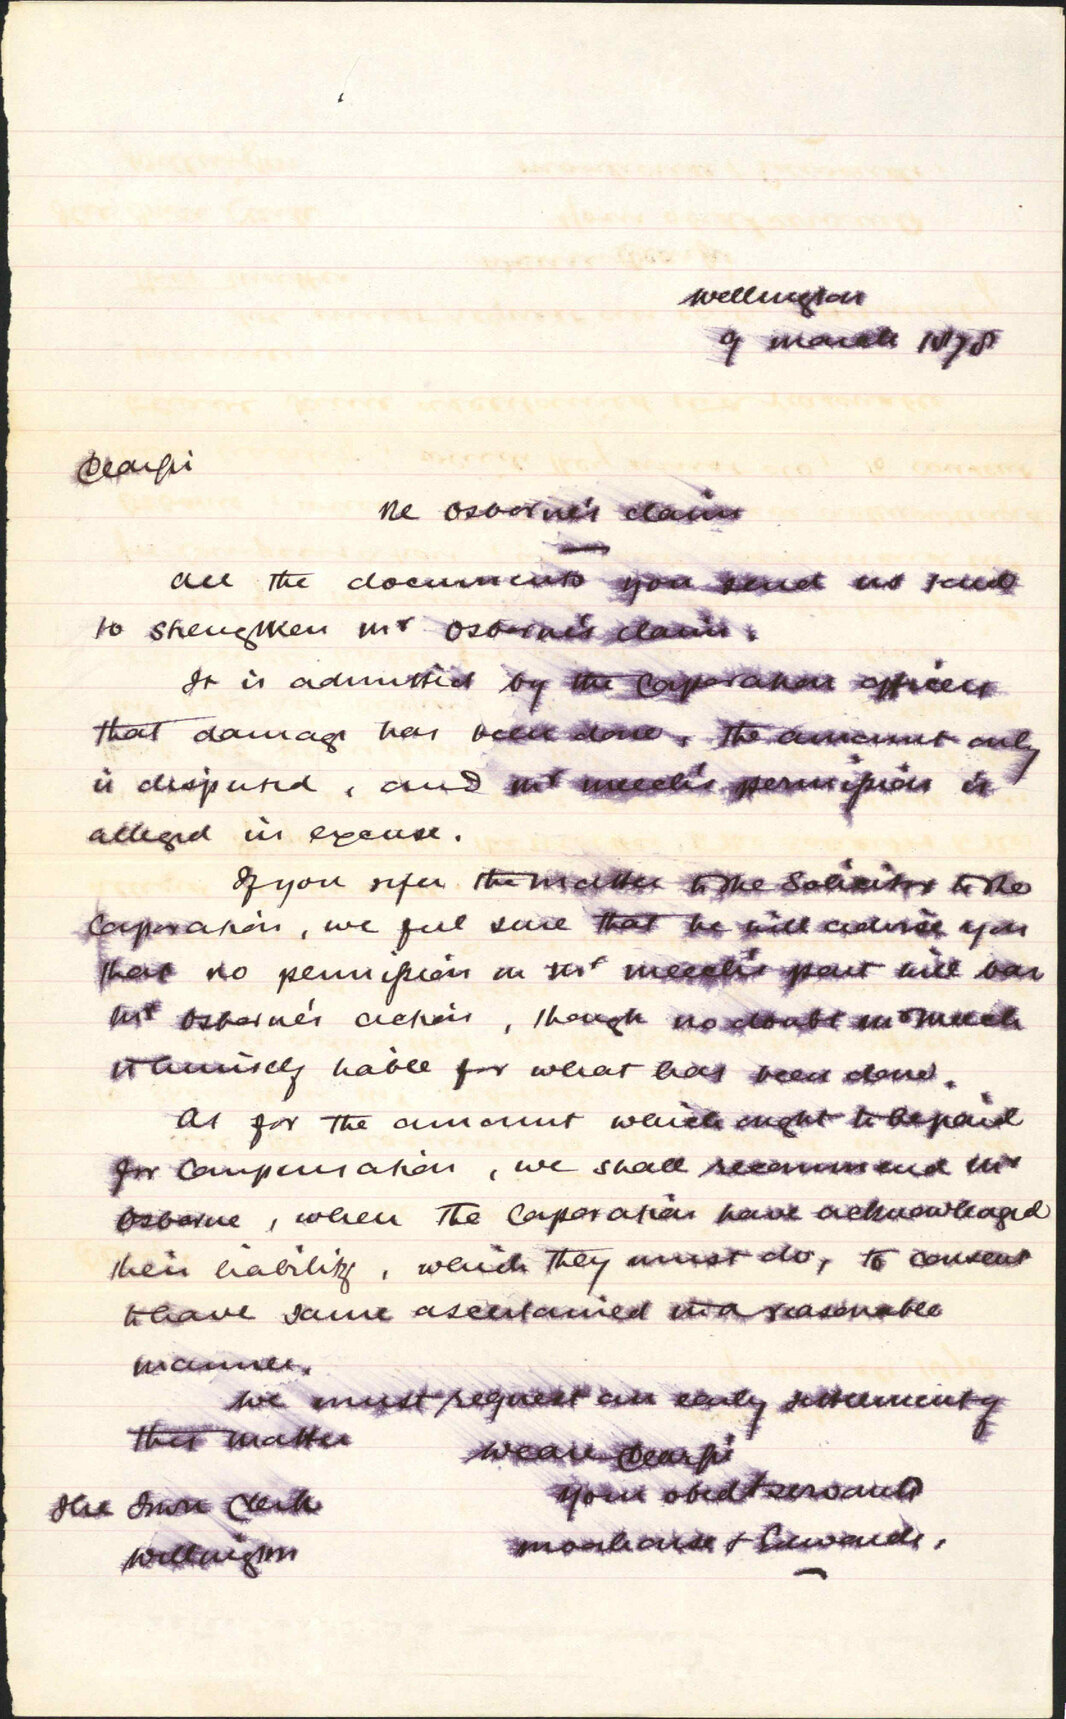 Wellington
9 March 1878
Dear Sir
Re Osborne's claim
All the documents you send us tend
to strengthen Mr Osborne's claim.
It is admitted by the Corporation officers
that damage has been done, the amount only
is disputed, and Mr Meech's permission is
alleged in excuse.
If you refer the matter to the Solicitor to the
Corporation, we feel sure that he will advise you
that no permission on Mr Meech's part will bar
Mr Osborne's action, though no doubt Mr Meech
is himself liable for what has been done.
As for the amount which ought to be paid
for compensation, we shall recommend Mr
Osborne, when the Corporation have acknowledged
their liability, which they must do, to consent
to have same ascertained in a reasonable
manner.
We must request an early settlement of
this matter
We are Dear Sir
Your obedt servants
Moorhouse & Edwards.
The Town Clerk
Wellington